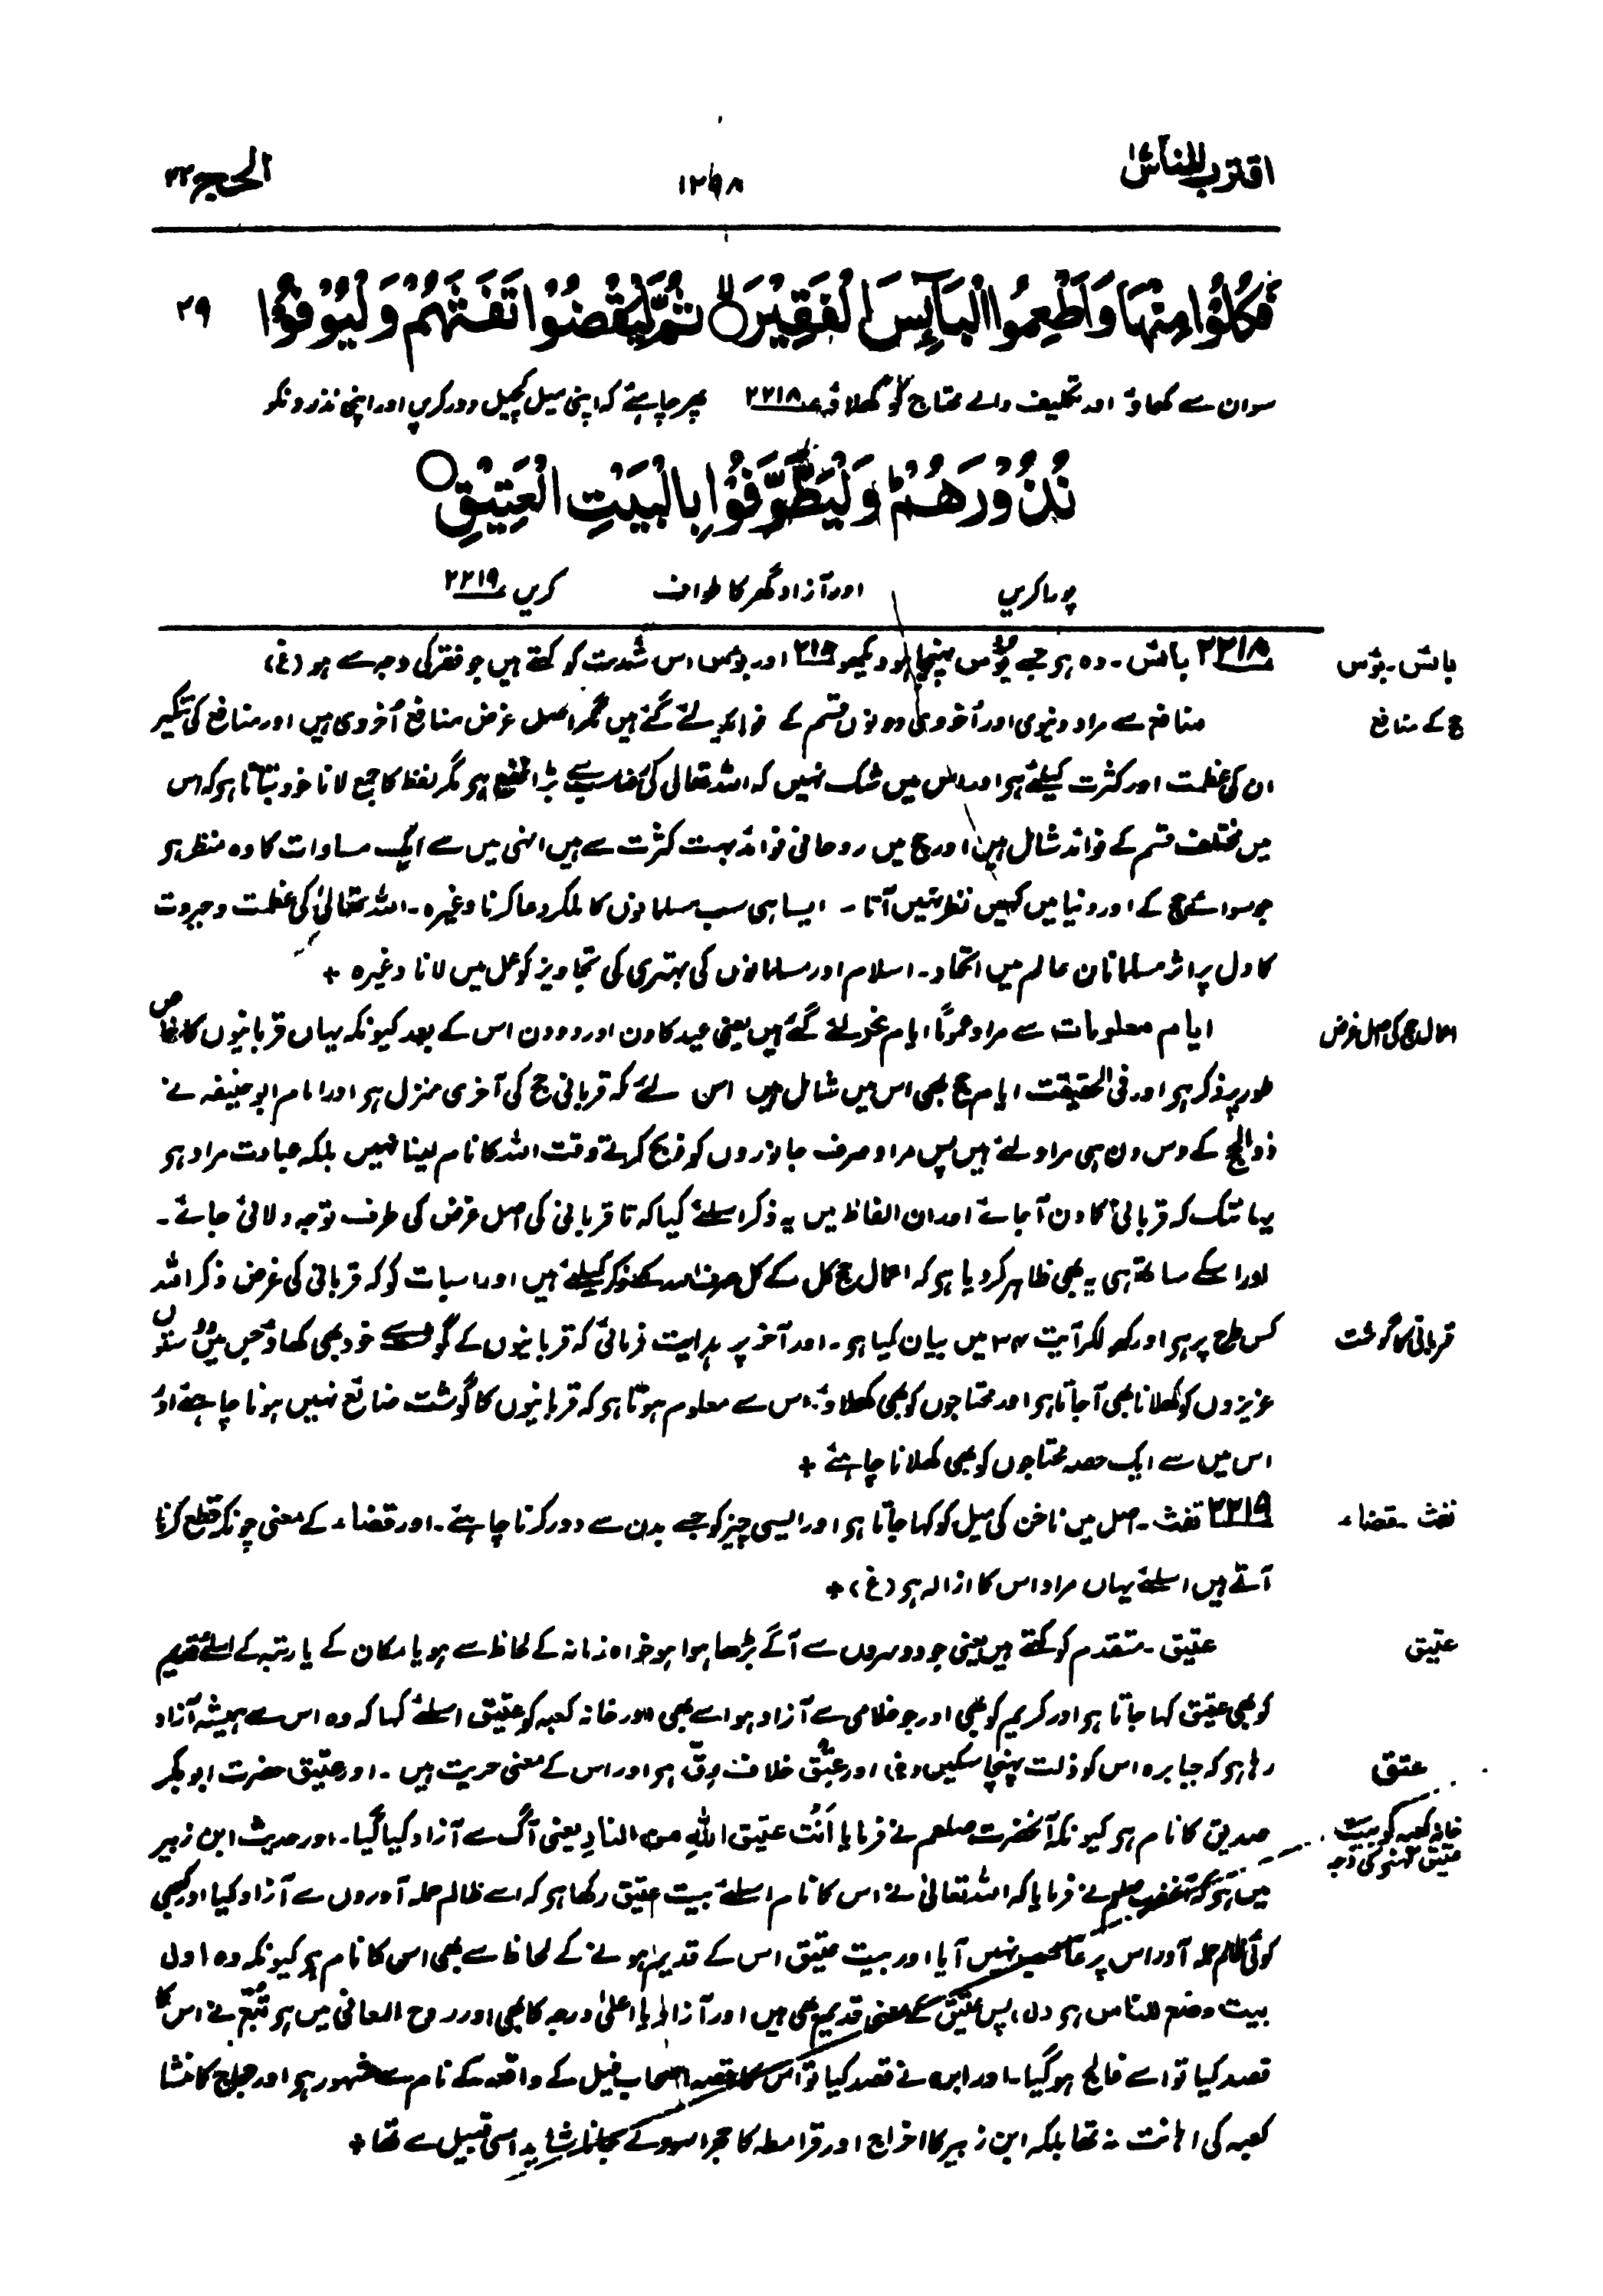 اقترب للناس
۱۲۹۸
الحج ۲۲
فَكُلُوْا مِنْهَا وَاَطْعِمُوا الْبَآئِسَ الْفَقِيْرَ ۙ ثُمَّ لْيَقْضُوْا تَفَثَهُمْ وَلْيُوْفُوْا
۲۹
سو ان سے کھاؤ اور تکلیف والے محتاج کو کھلاؤ ۲۲۱۸ پھر چاہئے کہ اپنی میل کچیل دور کریں اور اپنی نذرونکو
نُذُوْرَهُمْ وَلْيَطَّوَّفُوْا بِالْبَيْتِ الْعَتِيْقِ
پورا کریں اور آزاد گھر کا طواف کریں ۲۲۱۹
بائس۔ بؤس
۲۲۱۸ بائس۔ وہ ہو جسے بؤس پہنچا ہو دیکھو ۲۱۵ اور بؤس اس شدت کو کہتے ہیں جو فقر کی وجہ سے ہو (غ)
حج کے منافع
منافع سے مراد دنیوی اور اُخروی دونوں قسم کے فوائد لئے گئے ہیں مگر اصل غرض منافع اُخروی ہیں اور منافع کی تنکیر
ان کی عظمت اور کثرت کیلئے ہو اور اس میں شک نہیں کہ اللہ تعالی کی رضا سب سے بڑا نفع ہو مگر لفظ کا جمع لانا خود بتاتا ہو کہ اس
میں مختلف قسم کے فوائد شامل ہیں اور حج میں روحانی فوائد بہت کثرت سے ہیں انہی میں سے ایک مساوات کا وہ منظر ہو
جو سوائے حج کے اور دنیا میں کہیں نظر نہیں آتا۔ ایسا ہی سب مسلمانوں کا ملکر دعا کرنا وغیرہ۔ اللہ تعالیٰ کی عظمت و جبروت
کا دل پر اثر مسلمانان عالم میں اتحاد۔ اسلام اور مسلمانوں کی بہتری کی تجاویز کو عمل میں لانا وغیرہ +
اعمال حج کی اصل غرض
ایام معلومات سے مراد عموماً ایام نحر لئے گئے ہیں یعنی عید کا دن اور دو دن اس کے بعد کیونکہ یہاں قربانیوں کا خاص
طور پر ذکر ہو اور فی الحقیقت ایام حج بھی اس میں شامل ہیں اس لئے کہ قربانی حج کی آخری منزل ہو اور امام ابو حنیفہ نے
ذوالحج کے دس دن ہی مراد لئے ہیں پس مراد صرف جانوروں کو ذبح کرتے وقت اللہ کا نام لینا نہیں بلکہ عبادت مراد ہو
یہانتک کہ قربانی کا دن آجائے اور ان الفاظ میں یہ ذکر اسلئے کیا کہ تا قربانی کی اصل غرض کی طرف توجہ دلائی جائے۔
اور اسکے ساتھ ہی یہ بھی ظاہر کر دیا ہو کہ اعمال حج کل کے کل صرف اللہ کے ذکر کیلئے ہیں اور اس بات کو کہ قربانی کی غرض ذکر اللہ
قربانی کا گوشت
کس طرح پر ہو اور کھول کر آیت ۳۴ میں بیان کیا ہو۔ اور آخر پر ہدایت فرمائی کہ قربانیوں کے گوشت سے خود بھی کھاؤ جس میں دوستوں
عزیزوں کو کھلانا بھی آجاتا ہو اور محتاجوں کو بھی کھلاؤ۔ اس سے معلوم ہوتا ہو کہ قربانیوں کا گوشت ضائع نہیں ہونا چاہئے اور
اس میں سے ایک حصہ محتاجوں کو بھی کھلانا چاہئے +
تفث۔ قضاء
۲۲۱۹ تفث۔ اصل میں ناخن کی میل کو کہا جاتا ہو اور ایسی چیز کو جسے بدن سے دور کرنا چاہئے۔ اور قضاء کے معنی چونکہ قطع کرنا
آتے ہیں اسلئے یہاں مراد اس کا ازالہ ہو (غ) +
عتیق
عتیق۔ متقدم کو کہتے ہیں یعنی جو دوسروں سے آگے بڑھا ہوا ہو خواہ زمانہ کے لحاظ سے ہو یا مکان کے یا رتبہ کے اسلئے قدیم
کو بھی عتیق کہا جاتا ہو اور کریم کو بھی اور جو غلامی سے آزاد ہو اسے بھی اور خانہ کعبہ کو عتیق اسلئے کہا کہ وہ اس سے ہمیشہ آزاد
عتق
رہا ہو کہ جبابرہ اس کو ذلت پہنچا سکیں (غ) اور عتق خلاف رِقّ ہو اور اس کے معنی حریت ہیں۔ اور عتیق حضرت ابو بکر
خانہ کعبہ کو بیت
عتیق کہنے کی وجہ
صدیق کا نام ہو کیونکہ آنحضرت صلعم نے فرمایا اَنْتَ عتیق اللہِ من النارِ یعنی آگ سے آزاد کیا گیا۔ اور حدیث ابن زبیر
میں ہو کہ آنحضرت صلعم نے فرمایا کہ اللہ تعالیٰ نے اس کا نام اسلئے بیت عتیق رکھا ہو کہ اسے ظالم حملہ آوروں سے آزاد کیا اور کبھی
کوئی ظالم حملہ آور اس پر غالب نہیں آیا اور بیت عتیق اس کے قدیم ہونے کے لحاظ سے بھی اس کا نام ہو کیونکہ وہ اول
بیت وضع للناس ہو (ل) پس عتیق کے معنی قدیم بھی ہیں اور آزاد یا اعلیٰ درجہ کا بھی اور روح المعانی میں ہو تُبَّع نے اس کا
قصد کیا تو اسے فالج ہوگیا۔ اور ابرہہ نے قصد کیا تو اس کا قصہ اصحاب فیل کے واقعہ کے نام سے مشہور ہو اور حجاج کا منشا
کعبہ کی اہانت نہ تھا بلکہ ابن زبیر کا اخراج اور قرامطہ کا حجر اسود لے جانا شاید اسی قبیل سے تھا +